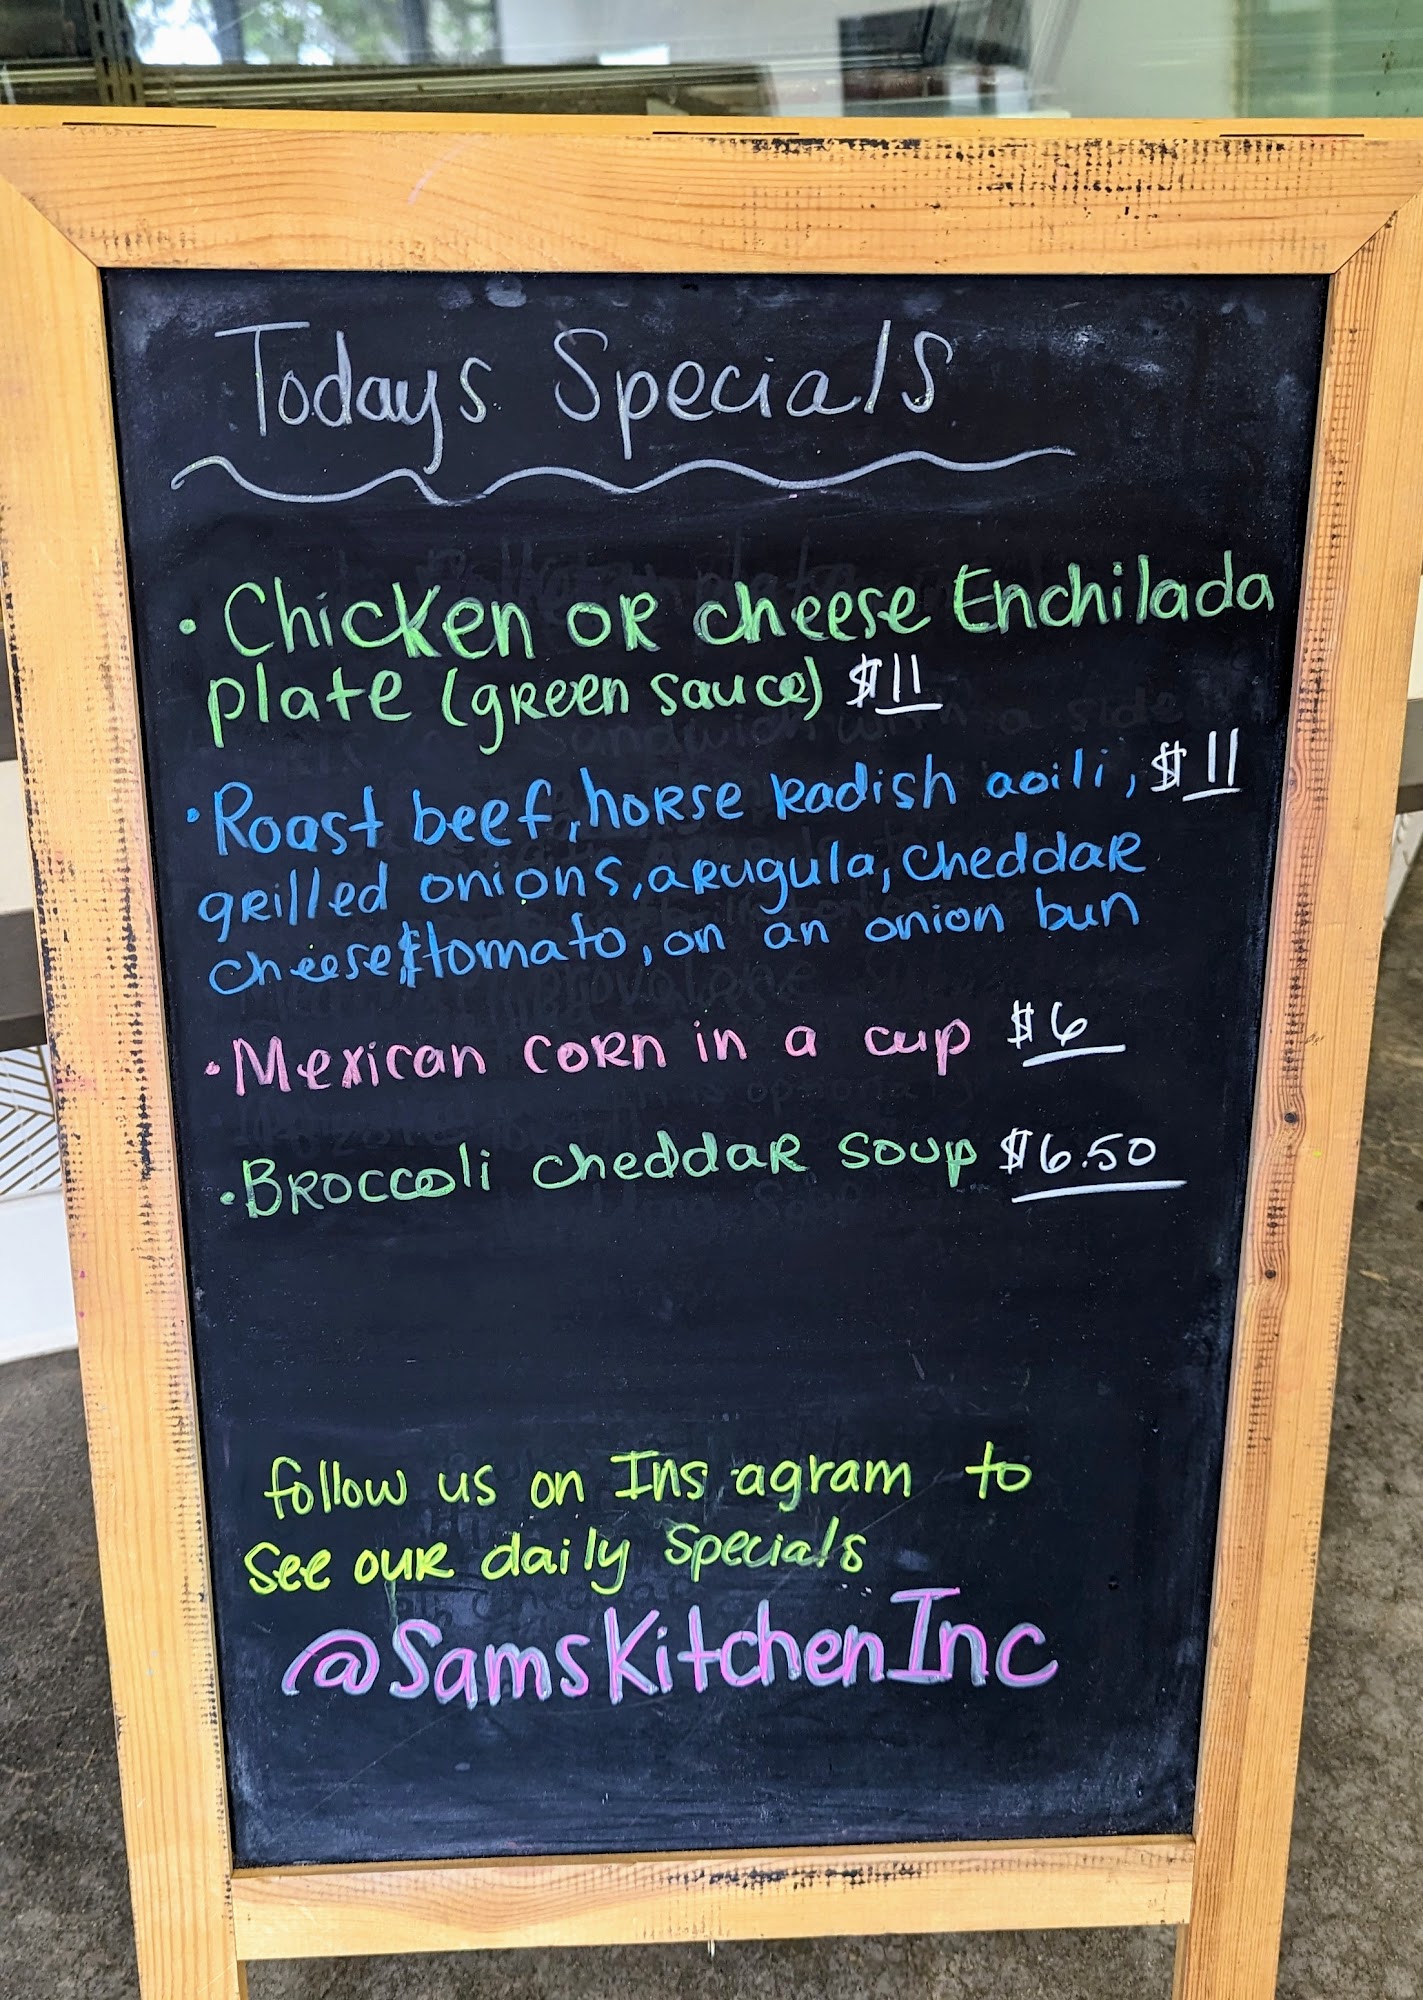 Todays Specials
• Chicken OR cheese Enchilada
plate (green sauce) $11
• Roast beef, horse radish aoili, $11
grilled onions, arugula, cheddar
cheese & tomato, on an onion bun
• Mexican corn in a cup $6
• Broccoli cheddar soup $6.50
follow us on Ins agram to
See our daily Specials
@SamsKitchenInc